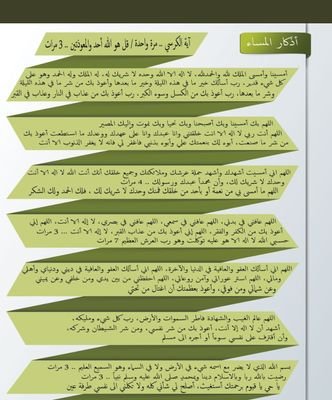 أذكار المساء
آية الكرسي .. مرة واحدة / قل هو الله أحد والمعوذتين .. 3 مرات
أمسينا وأمسى الملك لله والحمدلله، لا اله الا الله وحده لا شريك له، له الملك وله الحمد وهو على
كل شيء قدير، رب أسألك خير ما في هذه الليلة وخير ما بعدها وأعوذ بك من شر ما في هذه الليلة
وشر ما بعدها، رب أعوذ بك من الكسل وسوء الكبر، رب أعوذ بك من عذاب في النار وعذاب في القبر
اللهم بك أمسينا وبك أصبحنا وبك نحيا وبك نموت واليك المصير
اللهم أنت ربي لا اله الا انت خلقتني وانا عبدك وانا على عهدك ووعدك ما استطعت أعوذ بك
من شر ما صنعت، أبوء لك بنعمتك علي وأبوء بذنبي فاغفر لي فانه لا يغفر الذنوب الا أنت
اللهم اني أمسيت أشهدك وأشهد حملة عرشك وملائكتك وجميع خلقك أنك أنت الله لا اله الا انت
وحدك لا شريك لك، وأن محمداً عبدك ورسولك .. 4 مرات
اللهم ما أمسى بي من نعمة أو بأحد من خلقك فمنك وحدك لا شريك لك ، فلك الحمد ولك الشكر
اللهم عافني في بدني، اللهم عافني في سمعي، اللهم عافني في بصري، لا إله إلا أنت، اللهم إني
أعوذ بك من الكفر والفقر ، اللهم إني أعوذ بك من عذاب القبر ، لا إله إلا أنت ... 3 مرات
حسبي الله لا اله الا هو عليه توكلت وهو رب العرش العظيم 7 مرات
اللهم اني أسألك العفو والعافية في الدنيا والآخرة، اللهم اني أسألك العفو والعافية في ديني ودنياي وأهلي
ومالي، اللهم استر عوراتي وآمن روعاتي، اللهم احفظني من بين يدي ومن خلفي وعن يميني
وعن شمالي ومن فوقي، وأعوذ بعظمتك أن اغتال من تحتي
اللهم عالم الغيب والشهادة فاطر السموات والأرض، رب كل شيء ومليكه،
أشهد أن لا اله إلا أنت، أعوذ بك من شر نفسي، ومن شر الشيطان وشركه،
وأن أقترف على نفسي سوءاً أو أجره الى مسلم
بسم الله الذي لا يضر مع اسمه شيء في الأرض ولا في السماء وهو السميع العليم .. 3 مرات
رضيت بالله ربا وبالاسلام دينا وبمحمد صلى الله عليه وسلم نبياً .. 3 مرات
يا حي يا قيوم برحمتك أستغيث، أصلح لي شأني كله ولا تكلني الى نفسي طرفة عين